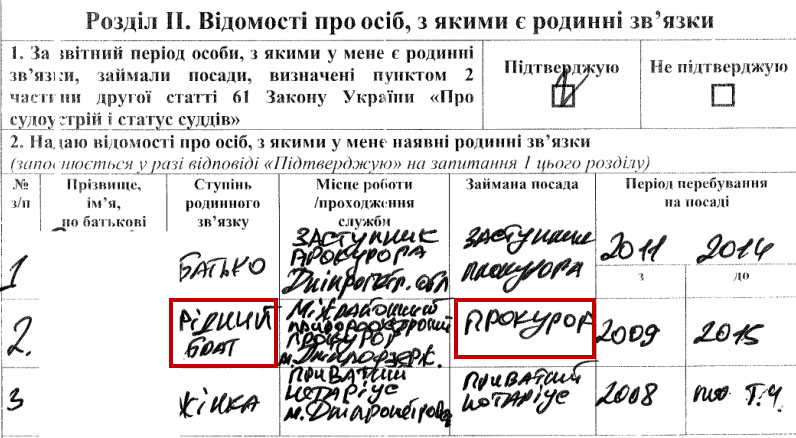 Розділ II. Відомості про осіб, з якими є родинні зв’язки
1. За звітний період особи, з якими у мене є родинні
зв’язки, займали посади, визначені пунктом 2
частини другої статті 61 Закону України «Про
судоустрій і статус суддів»
Підтверджую
Не підтверджую
2. Надаю відомості про осіб, з якими у мене наявні родинні зв’язки
(заповнюється у разі відповіді «Підтверджую» на запитання 1 цього розділу)
№
з/п
Прізвище,
ім’я,
по батькові
Ступінь
родинного
зв’язку
Місце роботи
/проходження
служби
Займана посада
Період перебування
на посаді
1
БАТЬКО
ЗАСТУПНИК
ПРОКУРОРА
Дніпропетр. обл
ЗАСТУПНИК
ПРОКУРОРА
2011 2014
з до
2.
РІДНИЙ
БРАТ
Міжрайонний
природоохоронний
ПРОКУРОР
м. Дніпродзерж.
ПРОКУРОР
2009 2015
3
ЖІНКА
ПРИВАТНИЙ
НОТАРІУС
м. Дніпропетровс
ПРИВАТНИЙ
НОТАРІУС
2008 по т.ч.